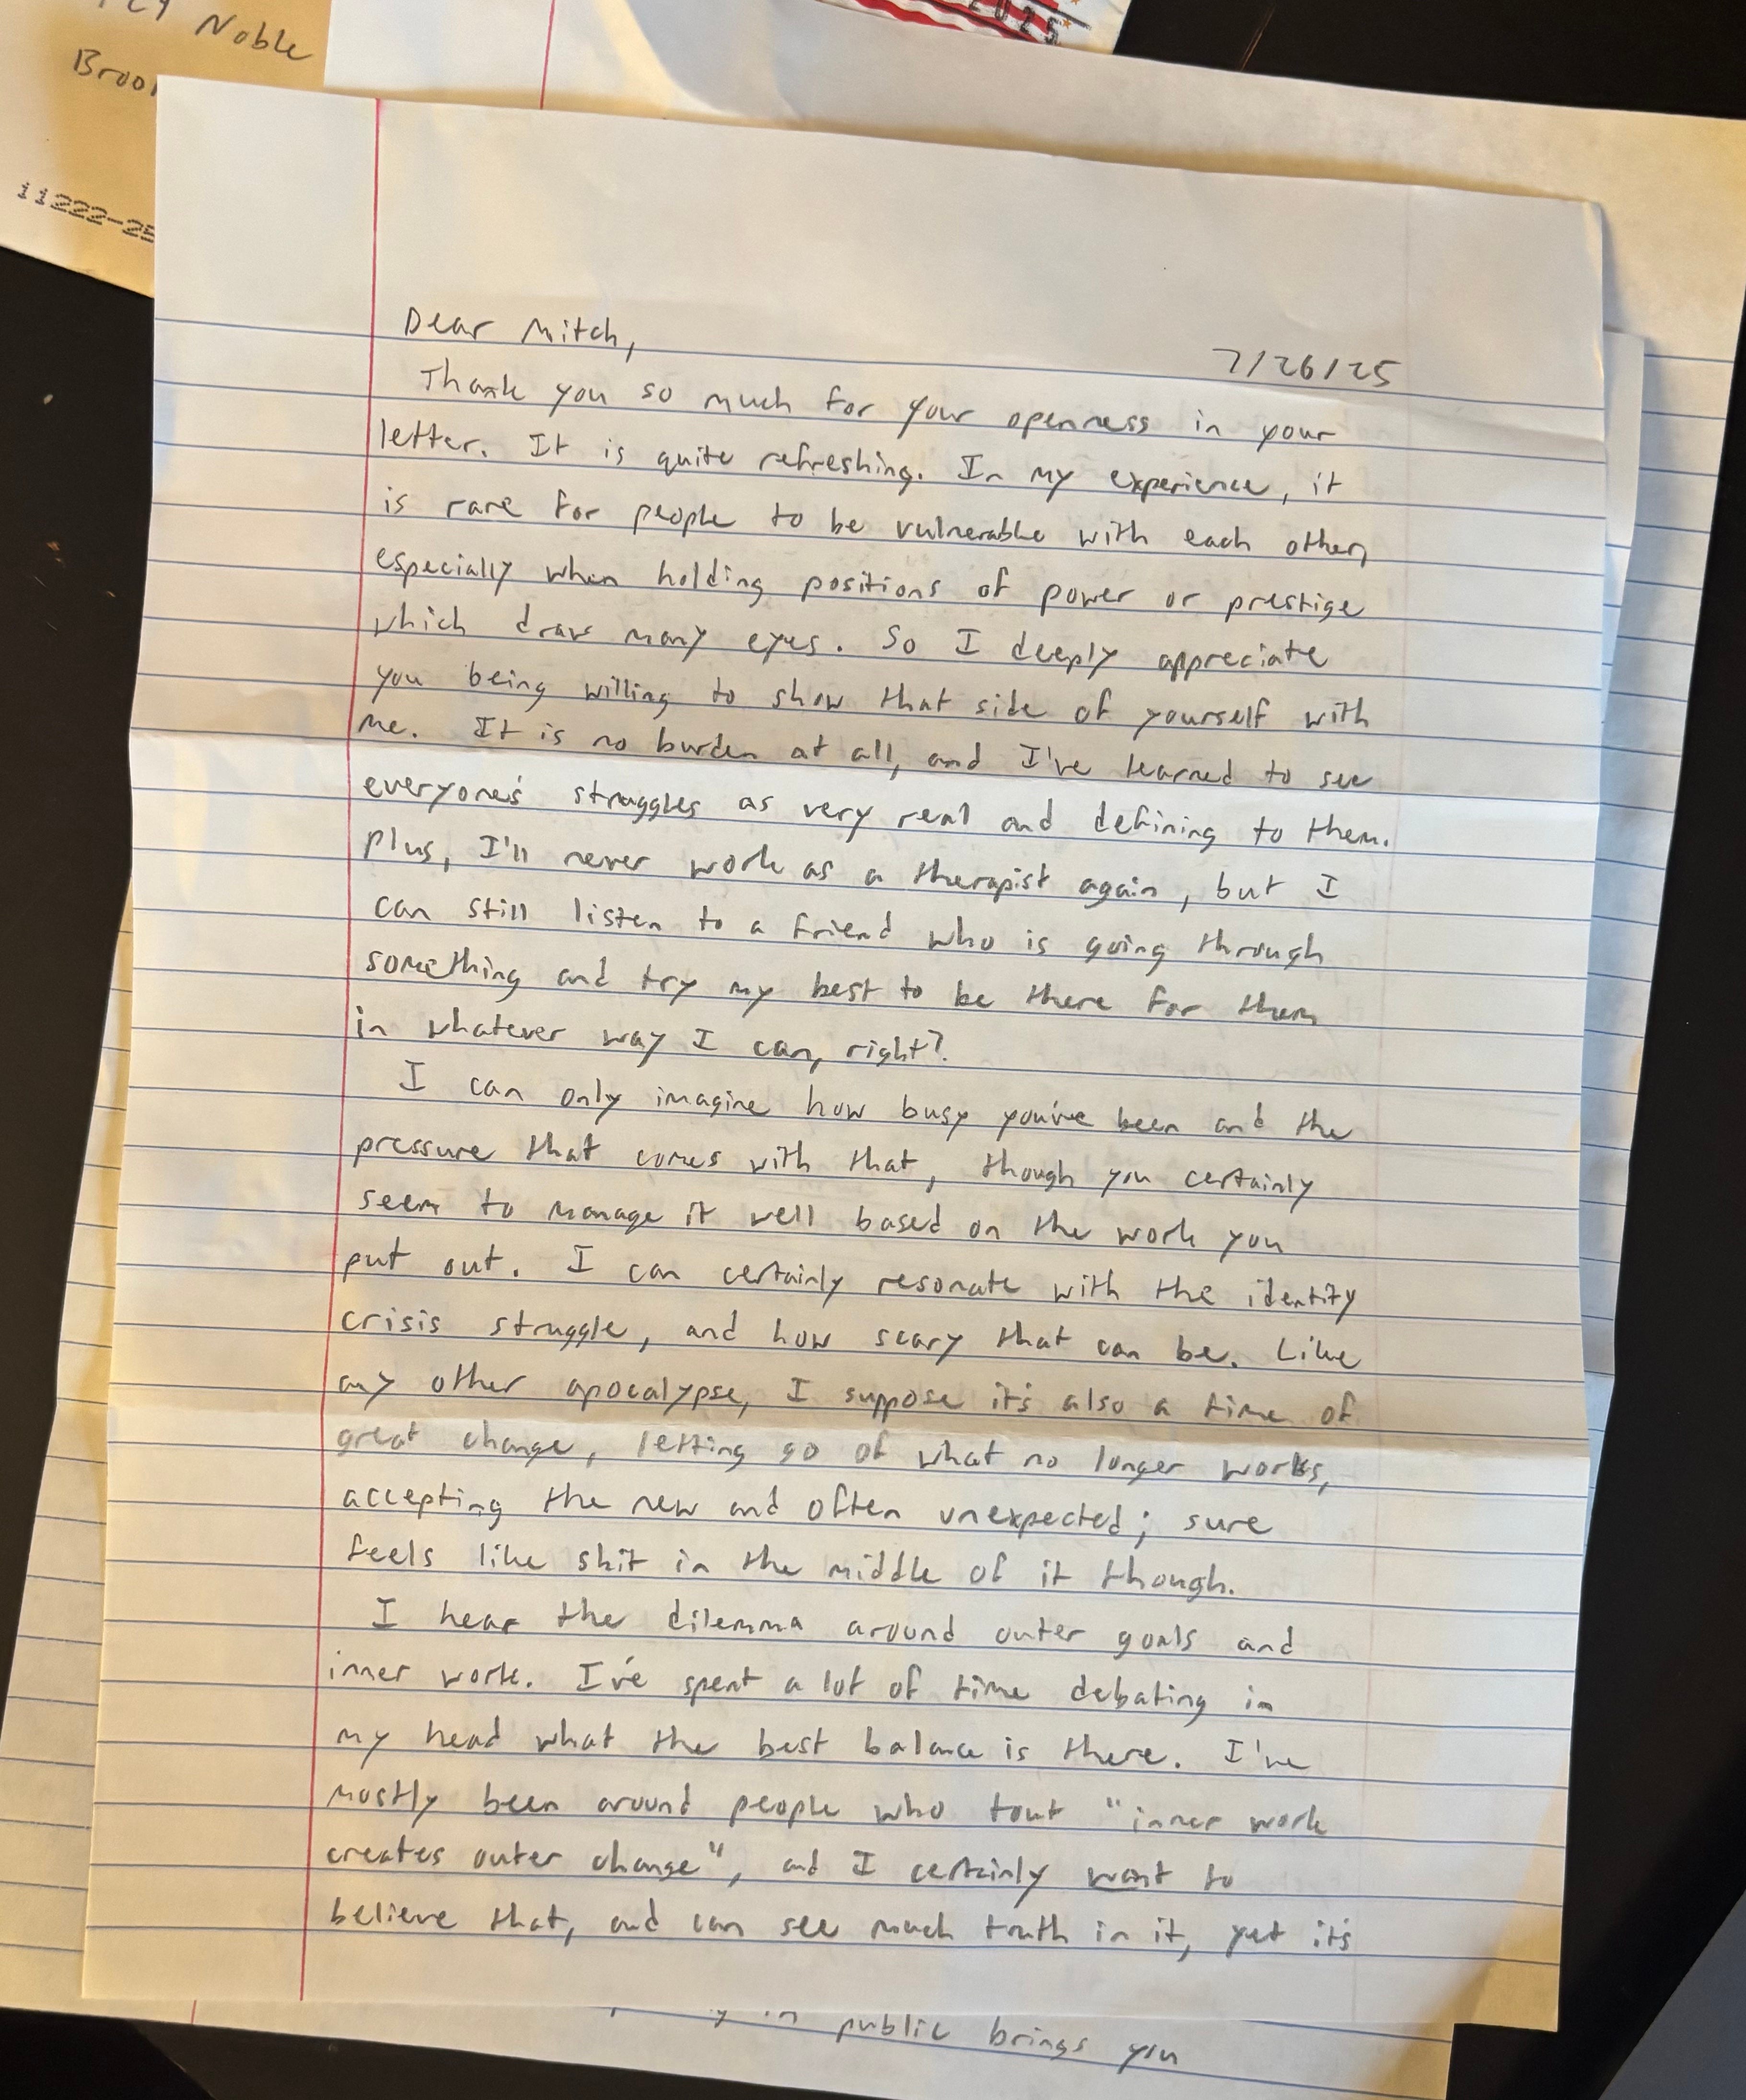 Noble
2025
11222-25
Dear Mitch,
7/26/25
Thank you so much for your openness in your
letter. It is quite refreshing. In my experience, it
is rare for people to be vulnerable with each other,
especially when holding positions of power or prestige
which draws many eyes. So I deeply appreciate
you being willing to show that side of yourself with
me. It is no burden at all, and I've learned to see
everyone's struggles as very real and defining to them.
Plus, I'll never work as a therapist again, but I
can still listen to a friend who is going through
something and try my best to be there for them
in whatever way I can, right?
I can only imagine how busy you've been and the
pressure that comes with that, though you certainly
seem to manage it well based on the work you
put out. I can certainly resonate with the identity
crisis struggle, and how scary that can be. Like
any other apocalypse, I suppose it's also a time of
great change, letting go of what no longer works,
accepting the new and often unexpected; sure
feels like shit in the middle of it though.
I hear the dilemma around outer goals and
inner work. I've spent a lot of time debating in
my head what the best balance is there. I've
mostly been around people who tout "inner work
creates outer change", and I certainly want to
believe that, and can see much truth in it, yet it's
in public brings you